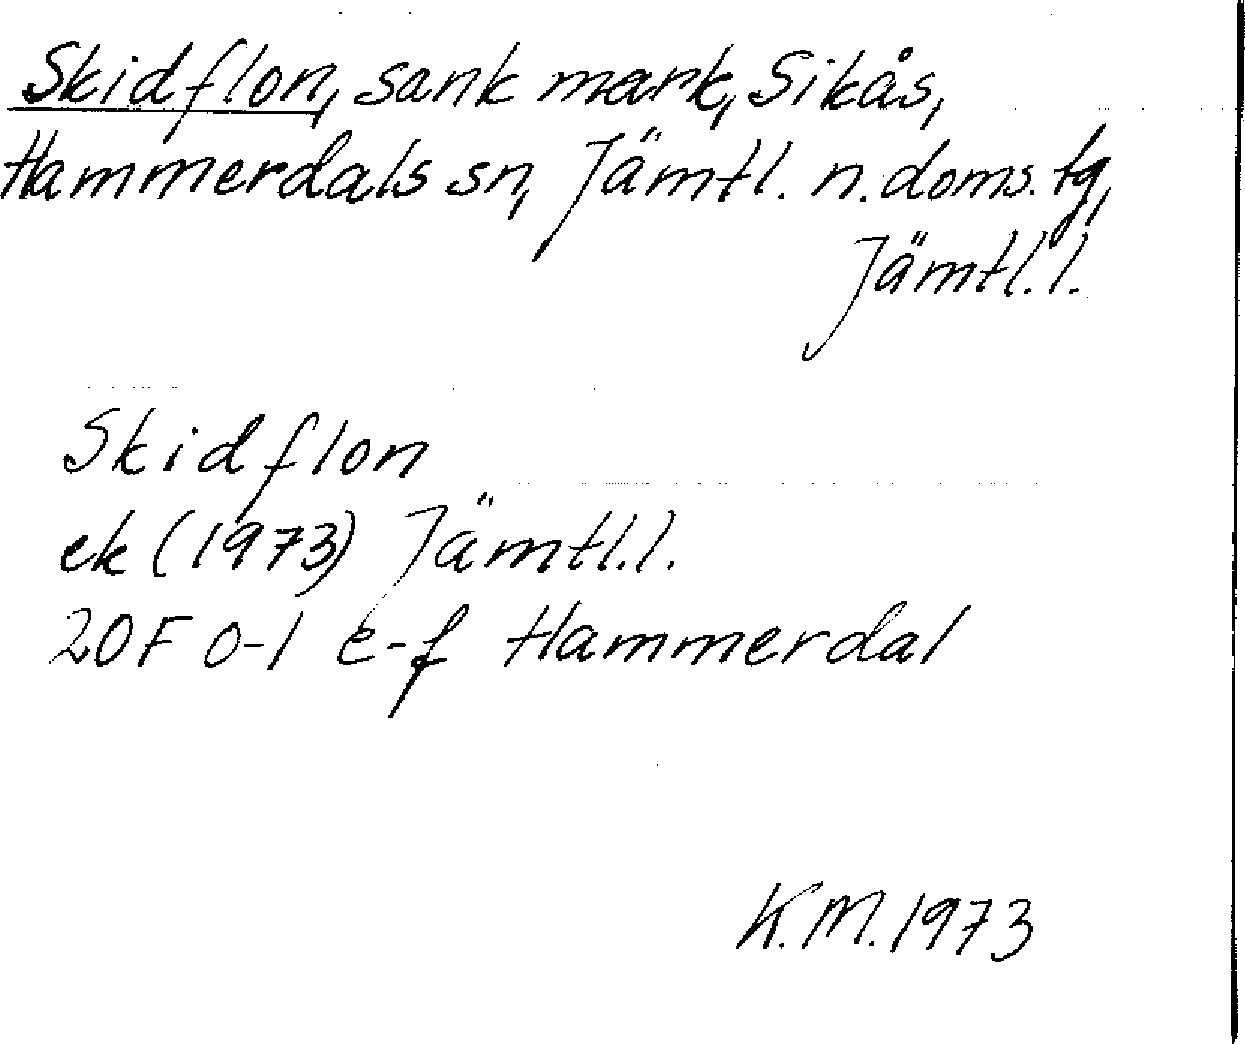 Skidflon, sank mark, Sikås,
Hammerdals sn, Jämtl. n. doms. tg,
Jämtl. l.
Skidflon
ek (1973) Jämtl. l.
20F 0-1 e-f Hammerdal
K.M. 1973